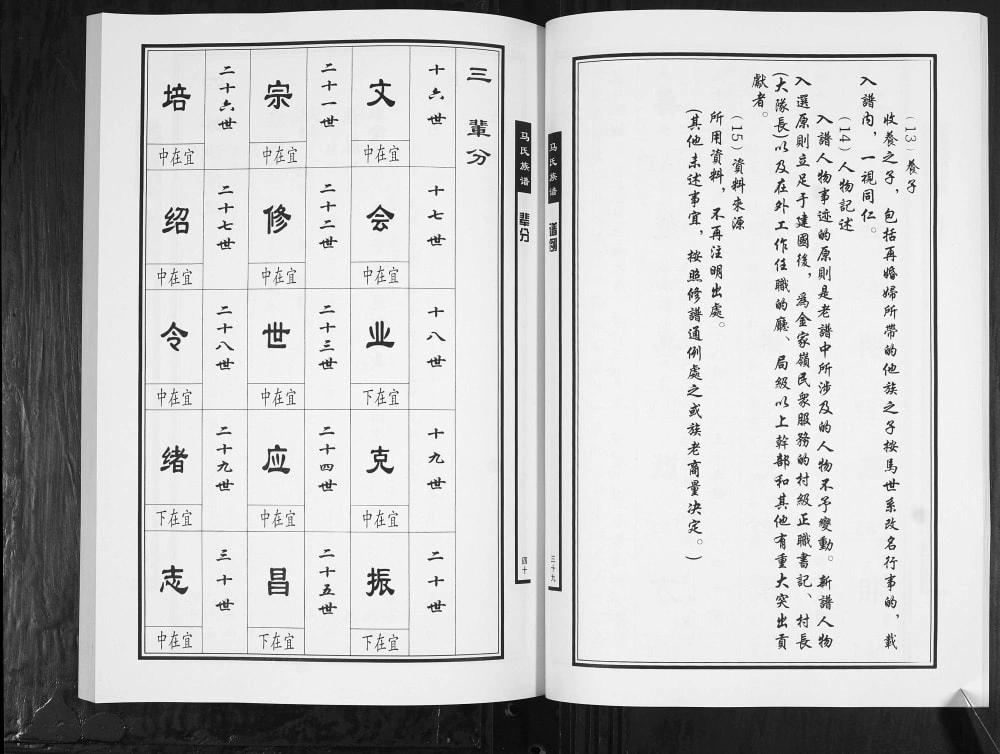 (13) 養子
收養之子，包括再婚婦所帶的他族之子按馬世系改名行事的，載
入譜内，一視同仁。
(14) 人物記述
入譜人物事迹的原則是老譜中所涉及的人物不予變動。新譜人物
入選原則立足于建國後，爲金家嶺民衆服務的村級正職書記、村長
(大隊長)以及在外工作任職的廳、局級以上幹部和其他有重大突出貢
獻者。
(15) 資料來源
所用資料，不再注明出處。
(其他未述事宜，按照修譜通例處之或族老商量决定。)
马氏族谱
谱例
三十九
马氏族谱
辈分
四十
三 輩分
十六世
文
中在宜
十七世
会
中在宜
十八世
业
下在宜
十九世
克
中在宜
二十世
振
下在宜
二十一世
宗
中在宜
二十二世
修
中在宜
二十三世
世
中在宜
二十四世
应
中在宜
二十五世
昌
下在宜
二十六世
培
中在宜
二十七世
绍
中在宜
二十八世
令
中在宜
二十九世
绪
下在宜
三十世
志
中在宜